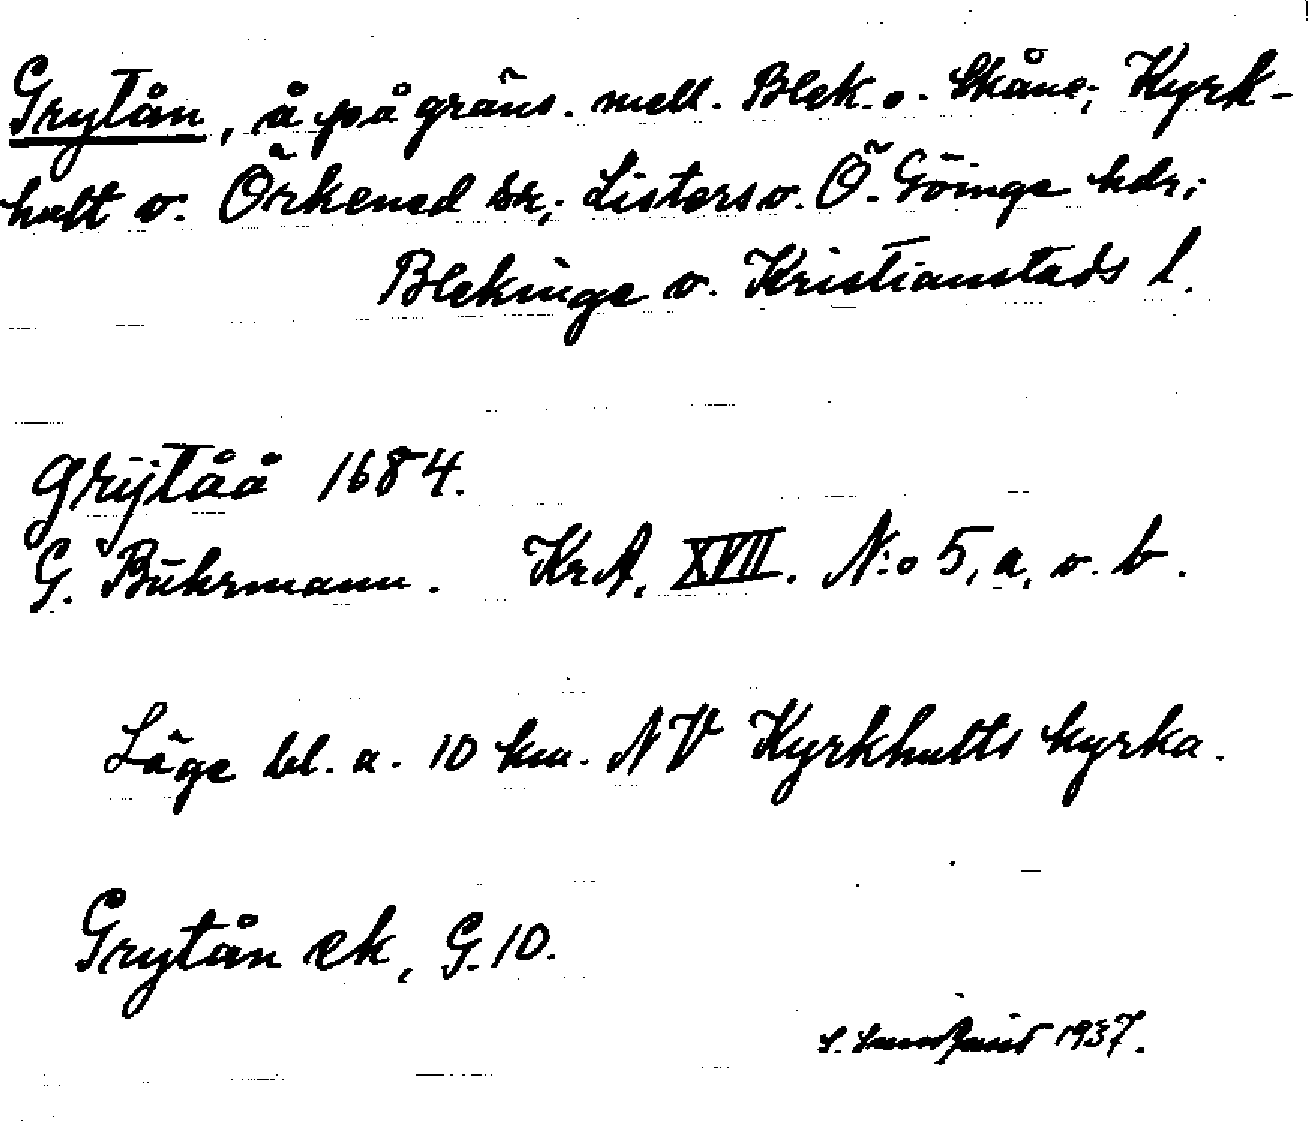 Grytån, å på gräns. mell. Blek. o. Skåne; Kyrk-
hult o. Örkened sk; Listers o. Ö. Göinge hdr;
Blekinge o. Kristianstads l.
Grÿtåå 1684.
G. Buhrmann. KrA, XVII. N:o 5, a, o. b.
Läge bl. a. 10 km. NV Kyrkhults kyrka.
Grytån ek, G. 10.
1937.